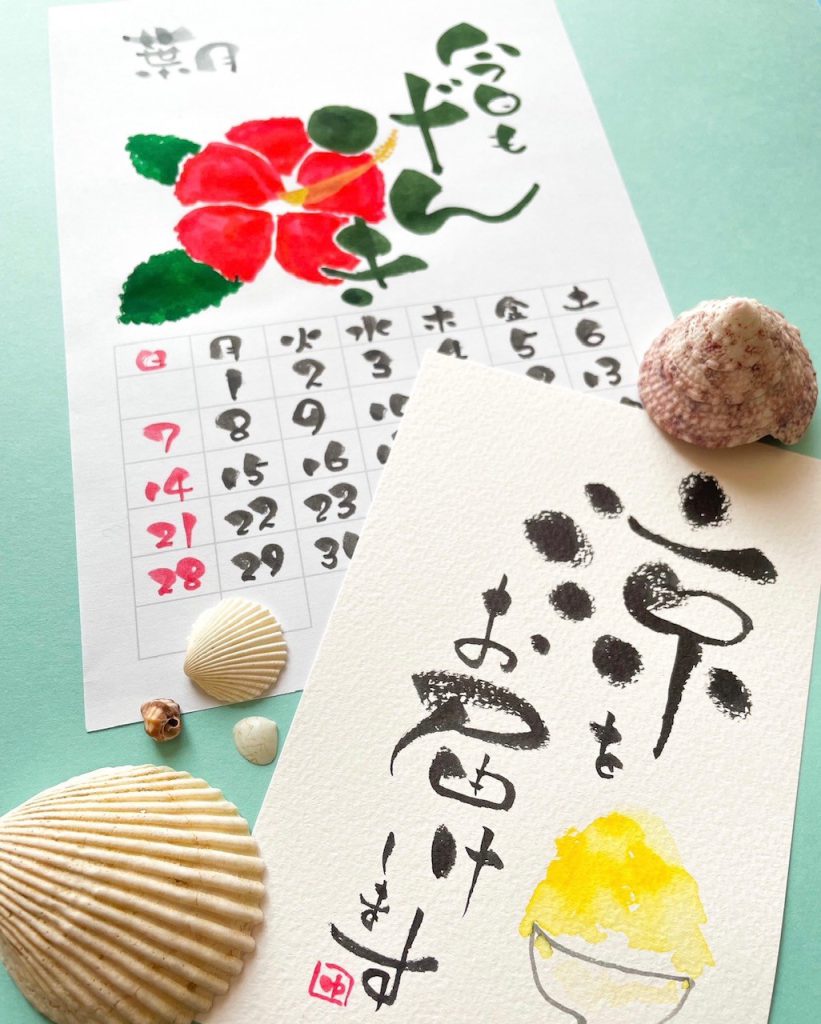 葉月
今日も
げんき
日 月 火 水 木 金 土
1 2 3 4 5 6
7 8 9 10 13
14 15 16
21 22 23
28 29 30
涼を
お届け
します